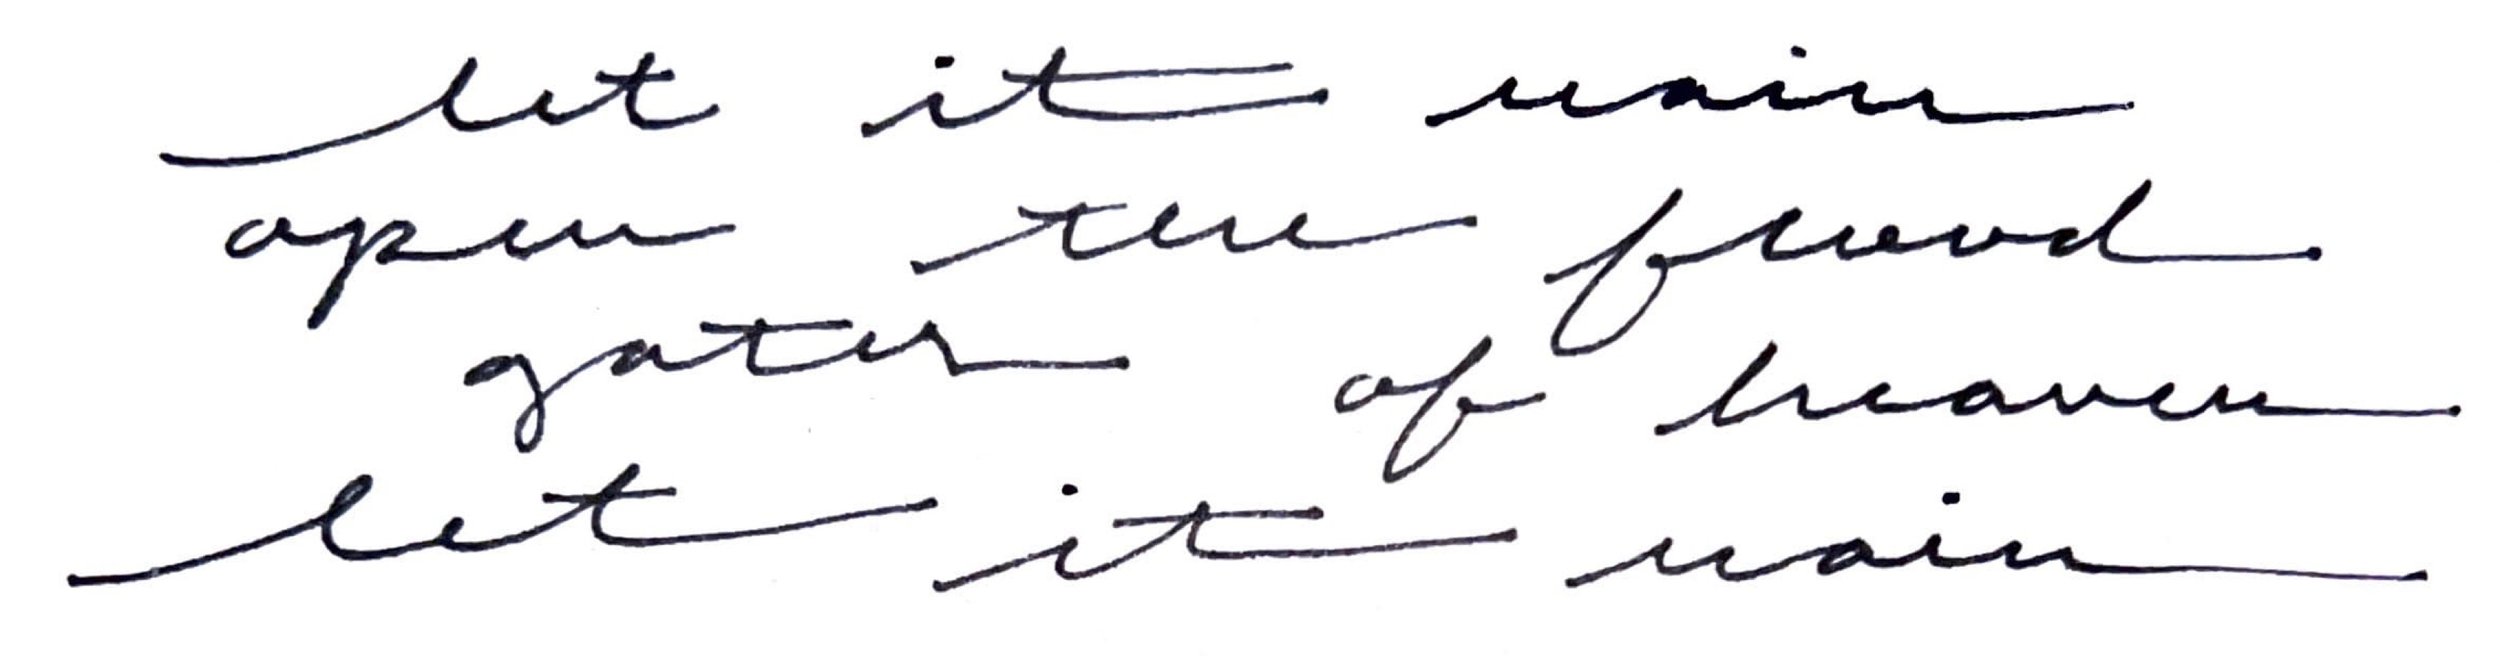 let it rain
open the flood
gates of heaven
let it rain